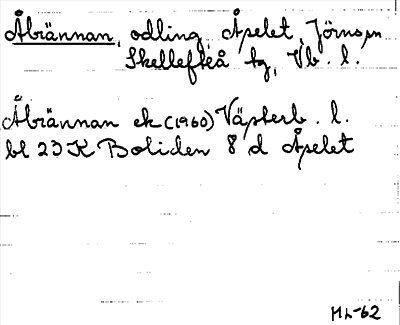 Åbrännan, odling Åselet, Jörns sn
Skellefteå tg, Vb. l.
Åbrännan ek (1960) Västerb. l.
bl 23 K Boliden 8 d Åselet
HL-62